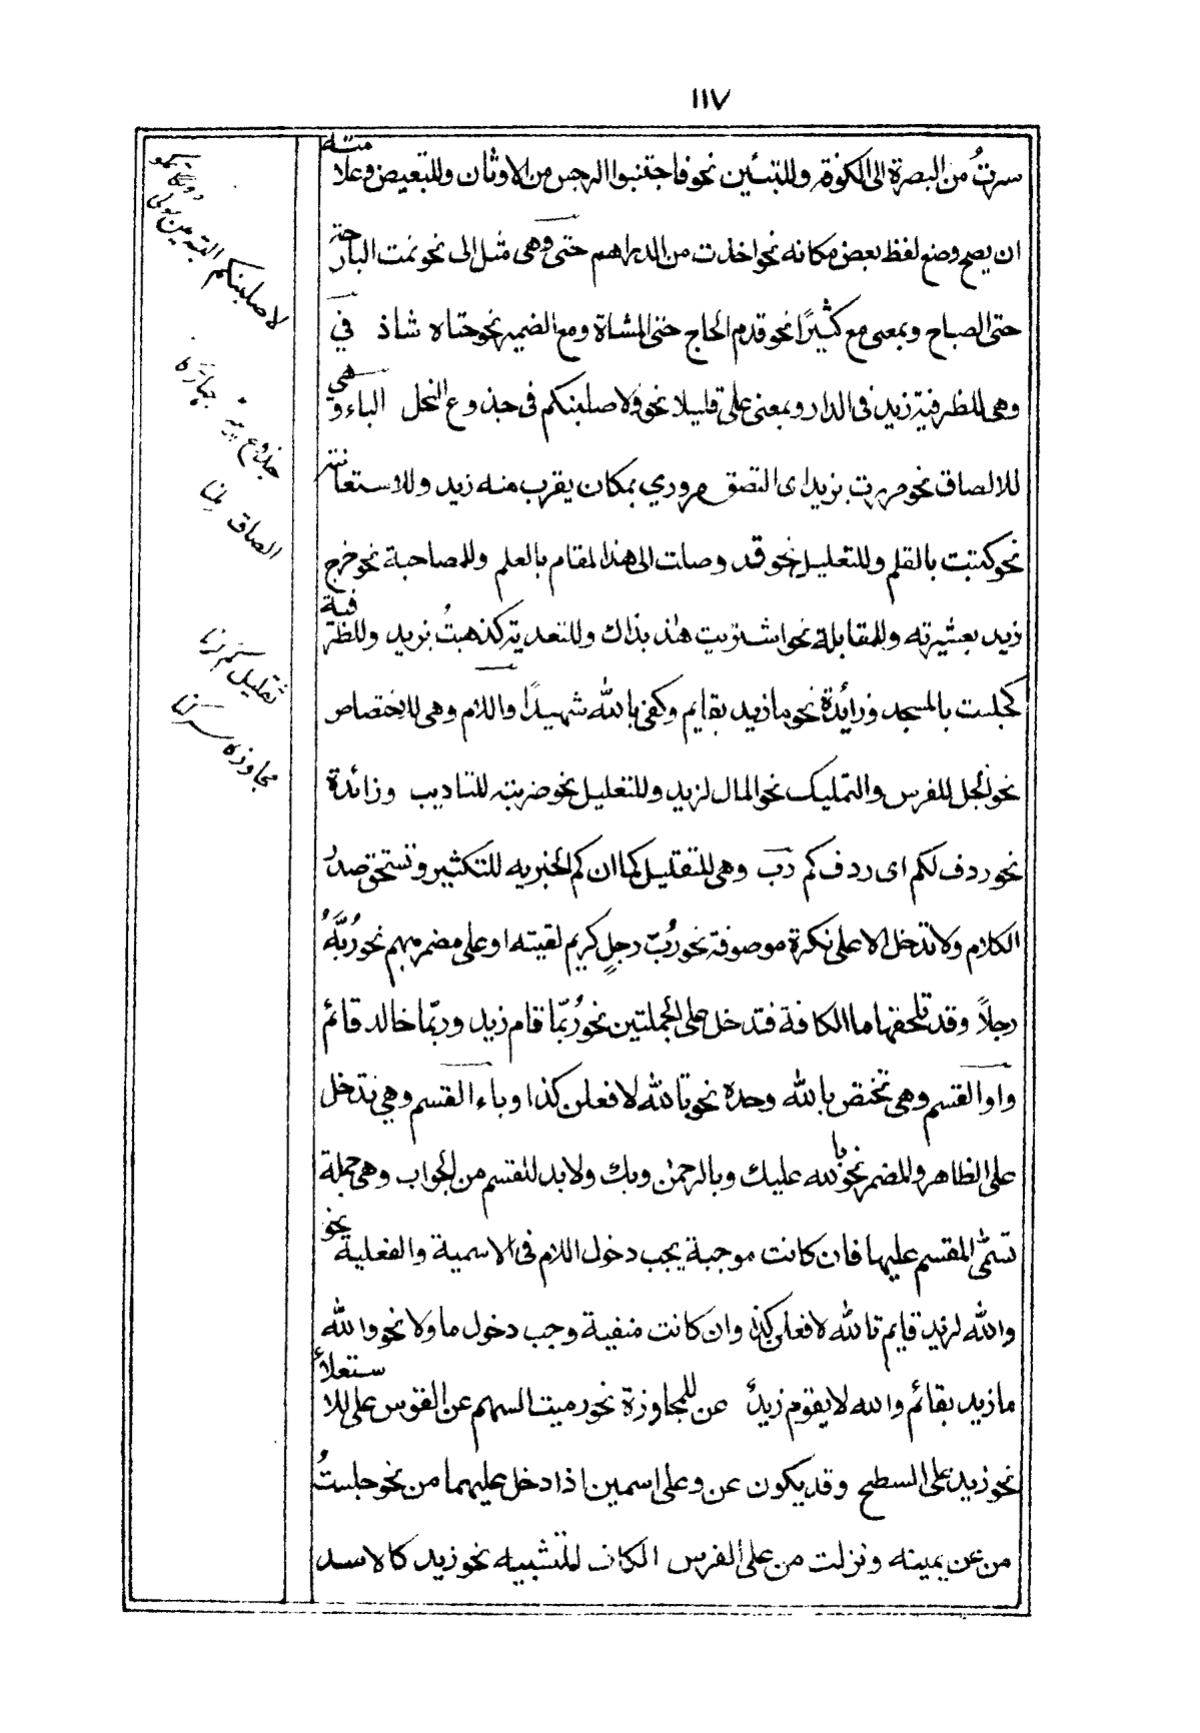 ١١٧
سرتُ من البصرة الى الكوفة وللتبئين نحو فاجتنبوا الرجس من الاوثان وللتبعيض وعلامته
ان يصح وضع لفظ بعض مكانه نحو اخذت من الدراهم حتى وهى مثل الى نحو نمت البارحة
حتى الصباح وبمعنى مع كثيرًا نحو قدم الحاج حتى المشاة ومع الضمير نحو حتاه شاذ في
وهى للظرفية زيد فى الدار وبمعنى على قليلا نحو ولاصلبنكم فى جذوع النخل الباء وهي
للالصاق نحو مررت بزيد اى التصق مروري بمكان يقرب منه زيد وللاستعانته
نحو كتبت بالقلم وللتعليل نحو قد وصلت الى هذا المقام بالعلم وللمصاحبة نحو خرج
زيد بعشيرته وللمقابلة نحو اشتريت هذا بذاك وللتعدية كذهبتُ بزيد وللظرفية
كجلست بالمسجد وزائدة نحو ما زيد بقايم وكفى بالله شهيدًا واللام وهى للاختصاص
نحو الجل للفرس والتمليك نحو المال لزيد وللتعليل نحو ضربته للتاديب وزائدة
نحو ردف لكم اى ردفكم ربّ وهى للتقليل كما ان كم الخبريه للتكثير وتستحق صدرُ
الكلام ولا تدخل الا على نكرة موصوفة نحو رُبّ رجلٍ كريم لقيته او على مضمر مبهم نحو رُبَّهُ
رجلاً وقد تلحقها ما الكافة فتدخل على الجملتين نحو رُبّما قام زيد وربّما خالد قائم
واو القسم وهى تختص بالله وحده نحو تالله لافعلن كذا وباء القسم وهي تدخل
على الظاهر والمضمر نحو بالله عليك وبالرحمٰن وبك ولا بد للقسم من الجواب وهى جملة
تسمّى المقسم عليها فان كانت موجبة يجب دخول اللام فى الاسمية والفعلية نحو
والله لزيد قايم تالله لافعلن كذا وان كانت منفية وجب دخول ما ولا نحو والله
ما زيد بقائم والله لا يقوم زيدٌ عن للمجاوزة نحو رميت السهم عن القوس على للاستعلاءُ
نحو زيد على السطح وقد يكون عن وعلى اسمين اذا دخل عليهما من نحو جلستُ
من عن يمينه ونزلت من على الفرس الكاف للتشبيه نحو زيد كالاسد
لاصلبنكم البته من
جذوع
الصاق
تقليل
مجاوزه